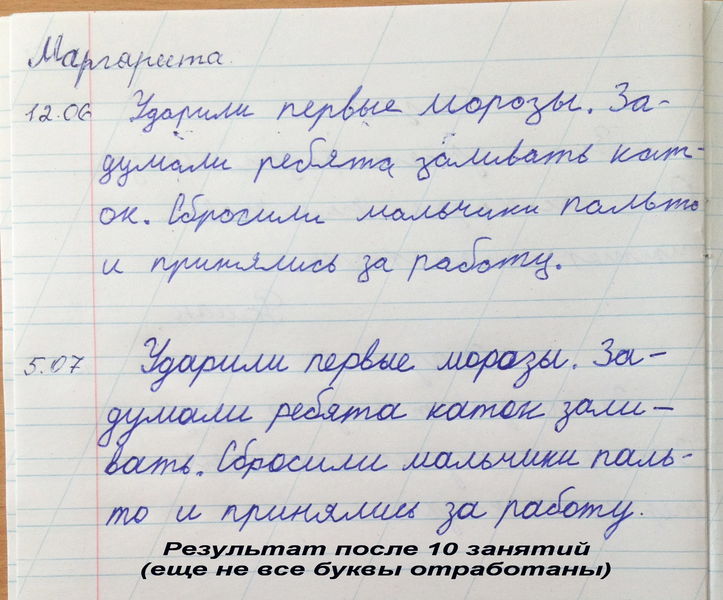 Маргарита
12.06 Ударили первые морозы. За-
думали ребята заливать кат-
ок. Сбросили мальчики пальто
и принялись за работу.
5.07 Ударили первые морозы. За-
думали ребята каток зали-
вать. Сбросили мальчики паль-
то и принялись за работу.
Результат после 10 занятий
(еще не все буквы отработаны)